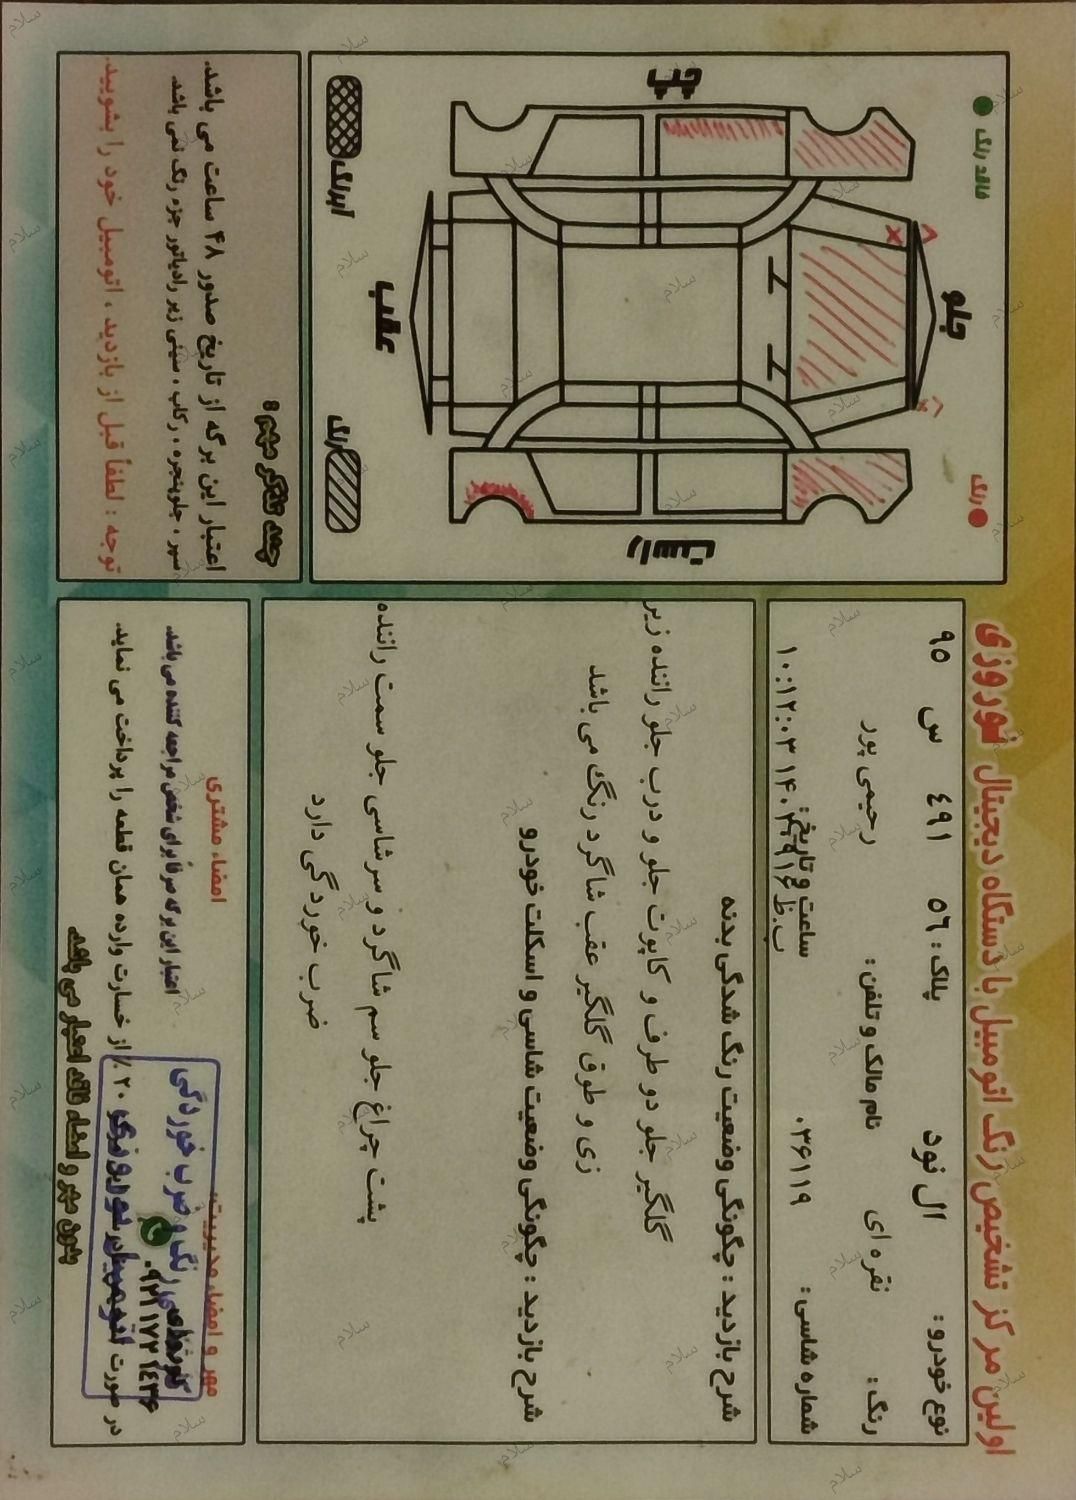 اولین مرکز تشخیص رنگ اتومبیل با دستگاه دیجیتال نوروزی
نوع خودرو : ال نود
پلاک : ٥٦ ٤٩١ س ٩٥
رنگ : نقره ای
نام مالک و تلفن : رحیمی پور
شماره شاسی : ۰۳۶۱۱۹
ساعت و تاریخ :
۱۰:۱۲:۰۳
ب.ظ
شرح بازدید : چگونگی وضعیت رنگ شدگی بدنه
گلگیر جلو دو طرف و کاپوت جلو و درب جلو راننده زیر
زی و طوق گلگیر عقب شاگرد رنگ می باشد
شرح بازدید : چگونگی وضعیت شاسی و اسکلت خودرو
پشت چراغ جلو سم شاگرد و سرشاسی جلو سمت راننده
ضرب خوردگی دارد
فاقد رنگ
رنگ
چپ
جلو
عقب
راست
آبرنگ
رنگ
چند تذکر مهم :
اعتبار این برگه از تاریخ صدور ۴۸ ساعت می باشد.
سپر ، جلوپنجره ، رکاب ، سینی زیر رادیاتور جزء رنگ نمی باشد.
توجه : لطفاً قبل از بازدید ، اتومبیل خود را بشویید.
مهر و امضاء مدیریت
امضاء مشتری
اعتبار این برگه صرفاً برای شخص مراجعه کننده می باشد.
رنگ و ضرب خوردگی
۰۹۲۱ ۱۷۲ ۱۴۳۶
در صورت
۲۰ ٪ از خسارت وارده همان قطعه را پرداخت می نماید.
بدون مهر و امضاء فاقد اعتبار می باشد.
سلام